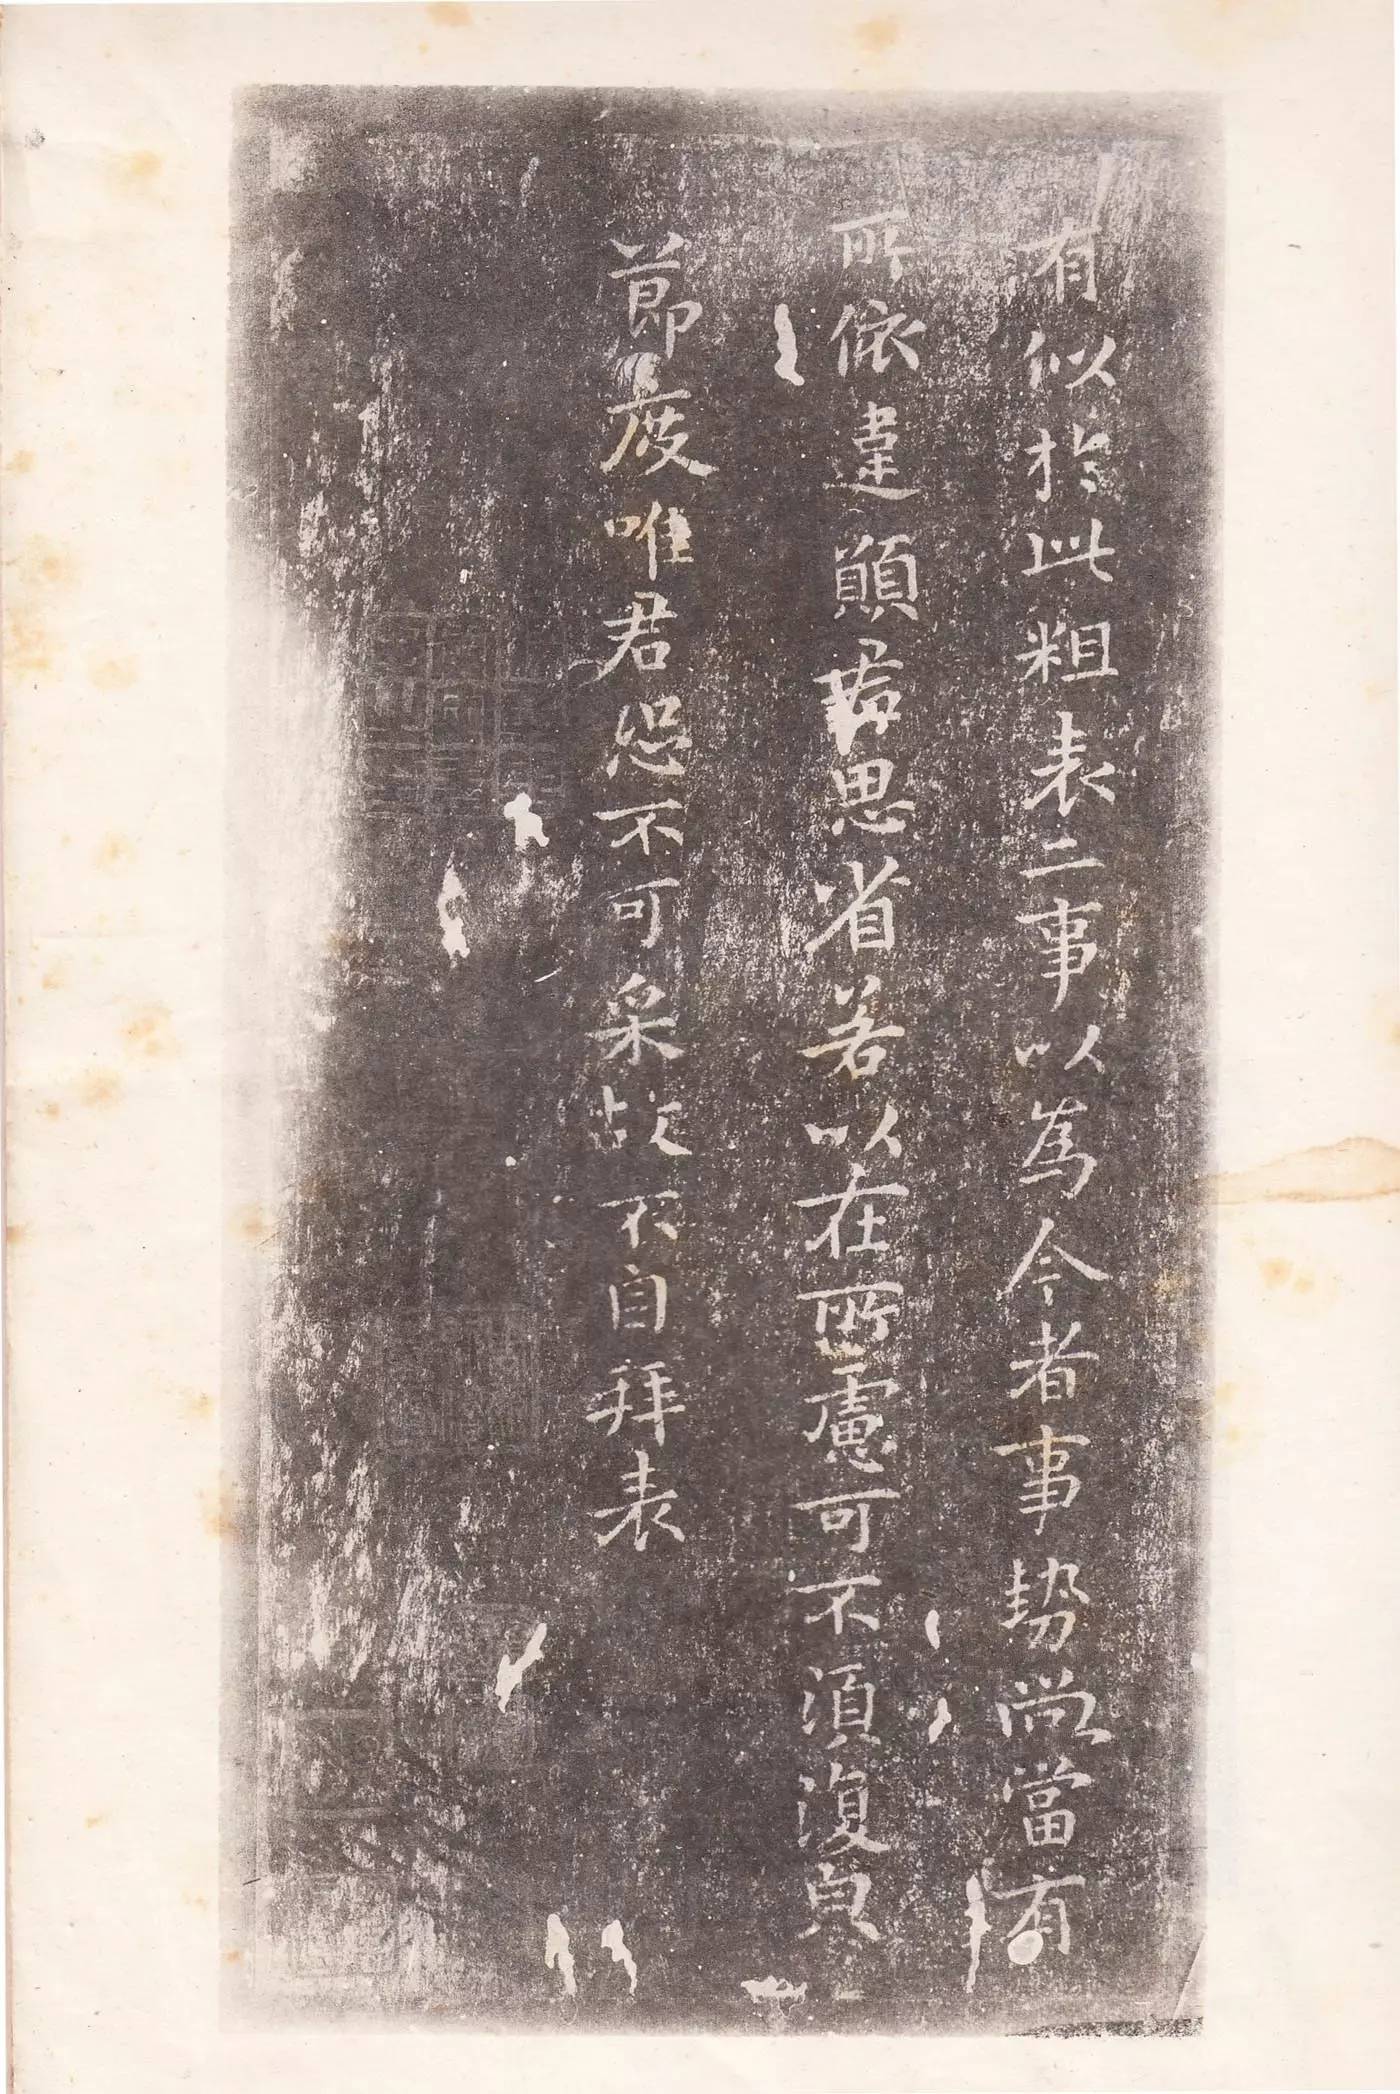 有似於此粗表二事以為今者事勢尚當有
所依違願君思省若以在所慮可不須復皃
節度唯君恐不可采故不自拜表